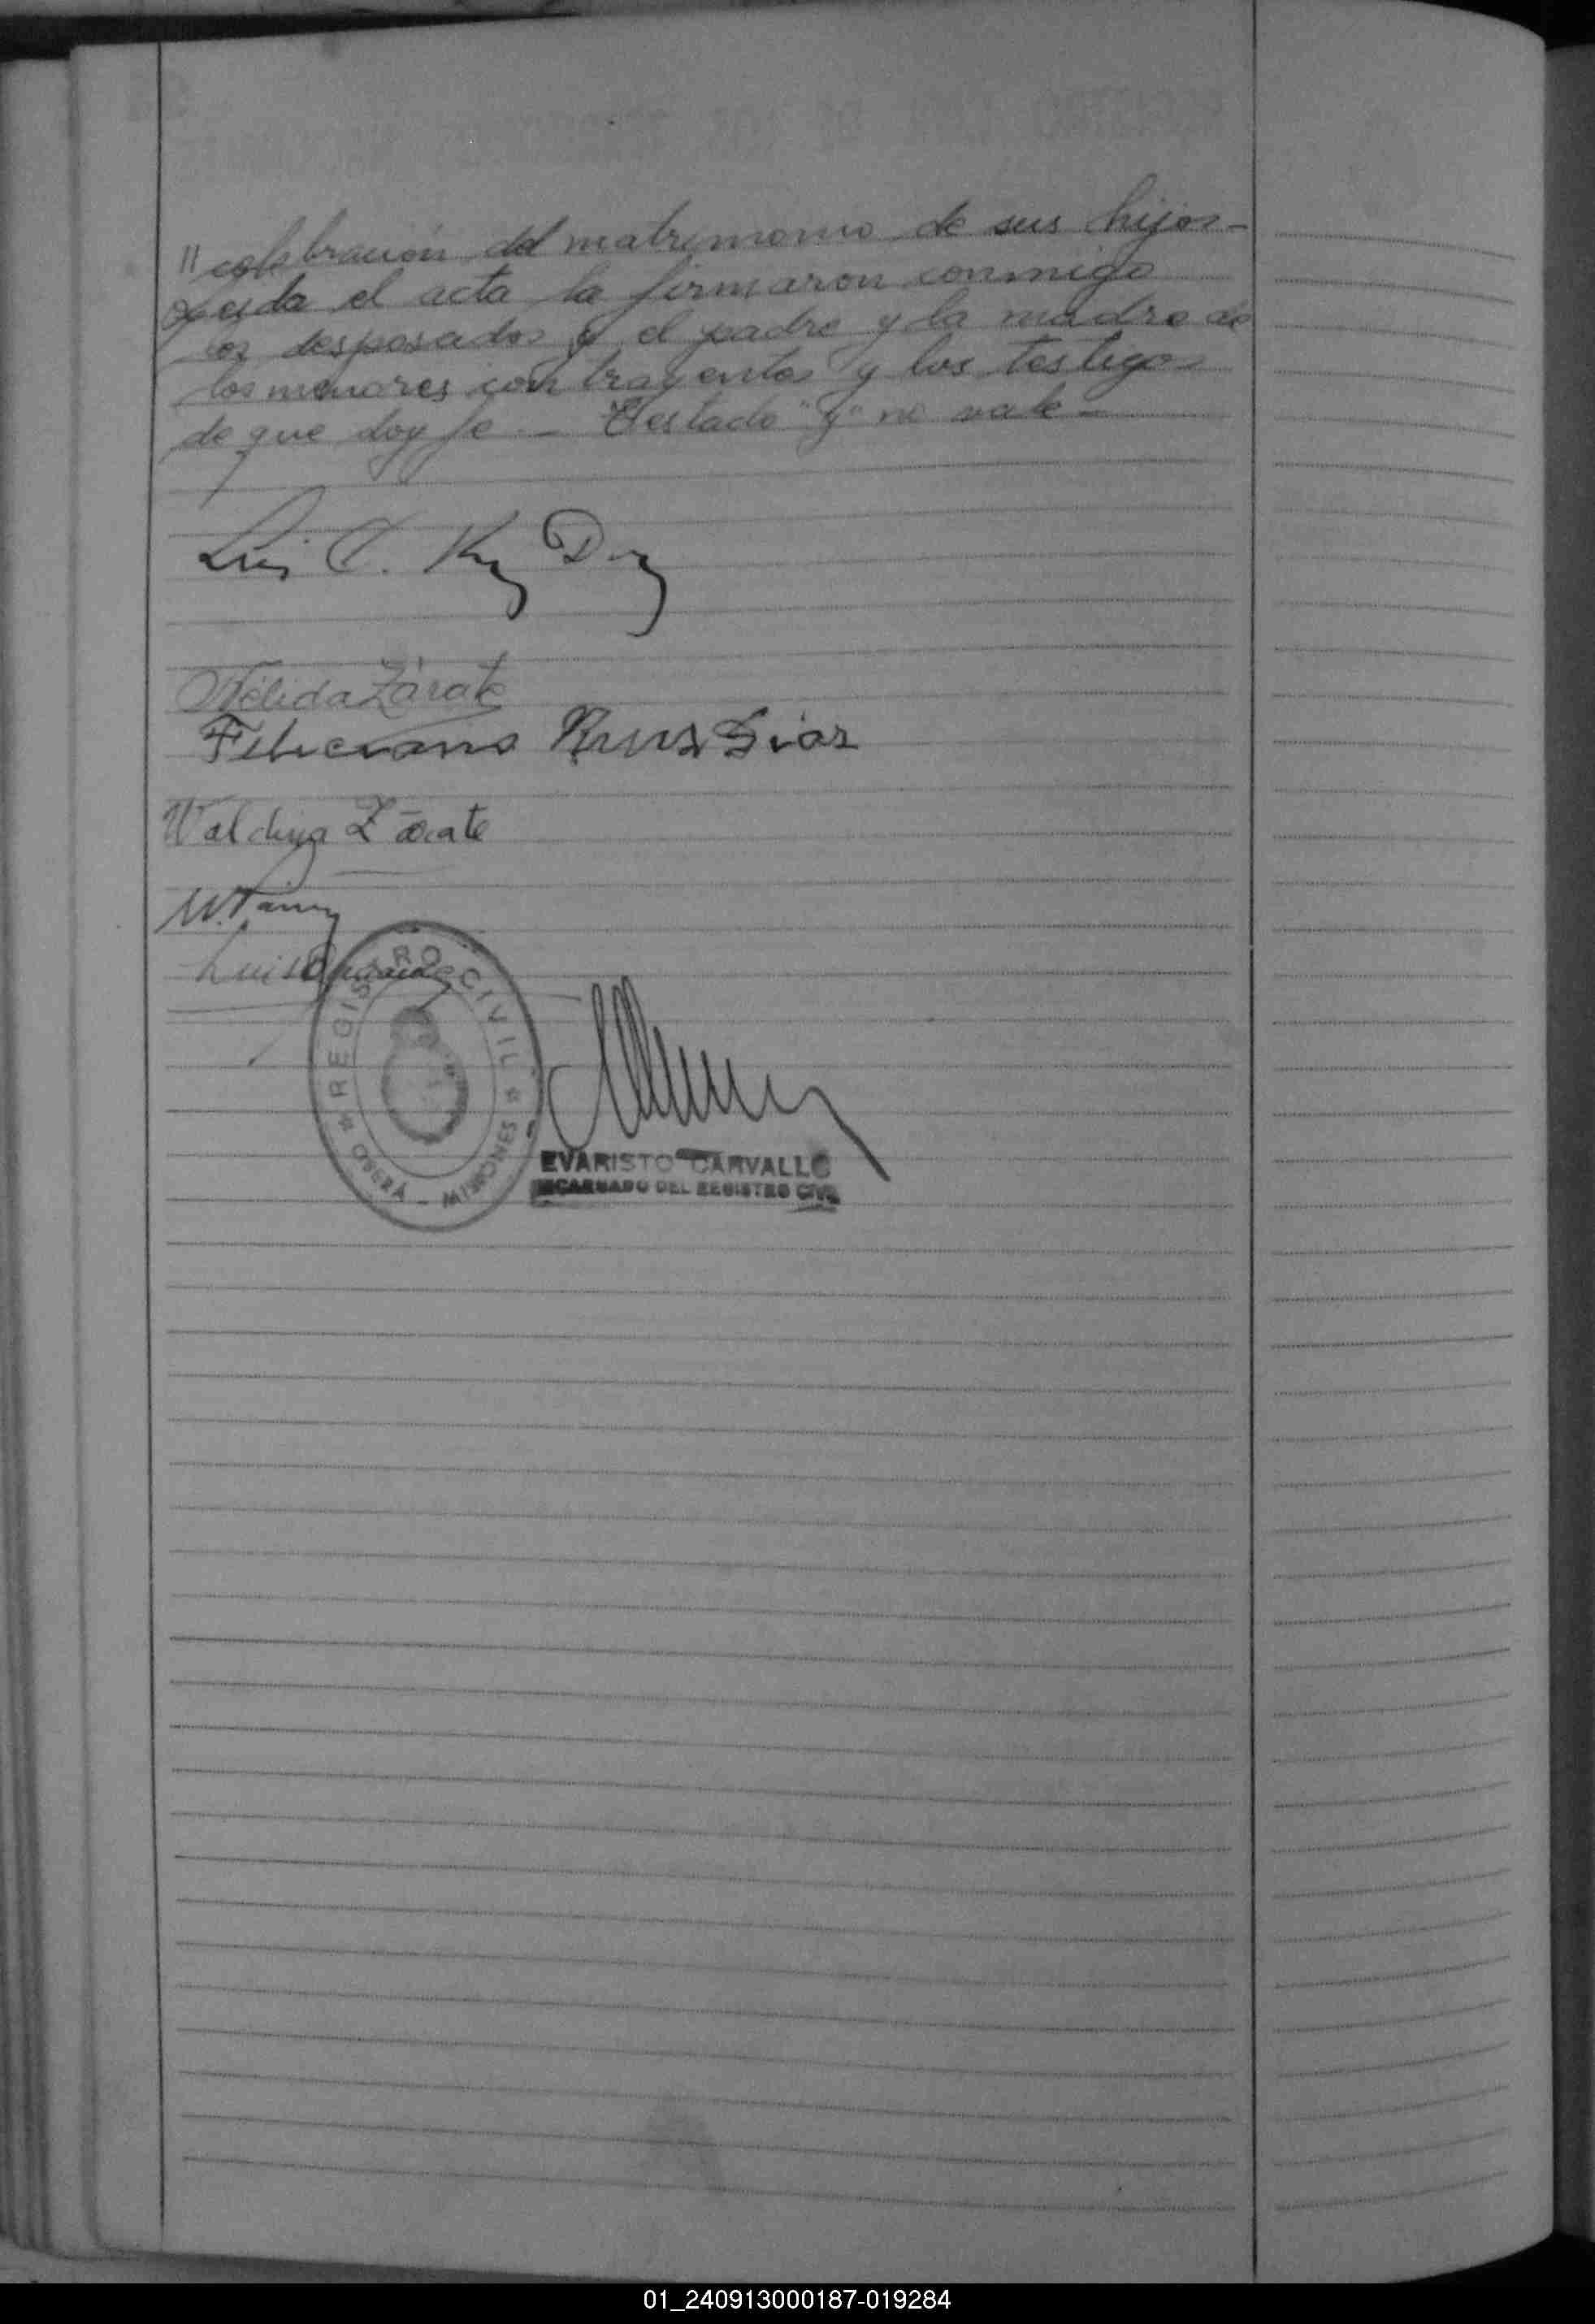 " celebración del matrimonio de sus hijos -
Leida el acta la firmaron conmigo
los desposados y el padre y la madre de
los menores contrayentes y los testigos
de que doy fe. - Testado "y" no vale -
Luis
Nélida Zárate
Feliciano Ruiz Diaz
Zárate
Luis
REGISTRO CIVIL
EVARISTO CARVALLO
ENCARGADO DEL REGISTRO CIVIL
01_240913000187-019284